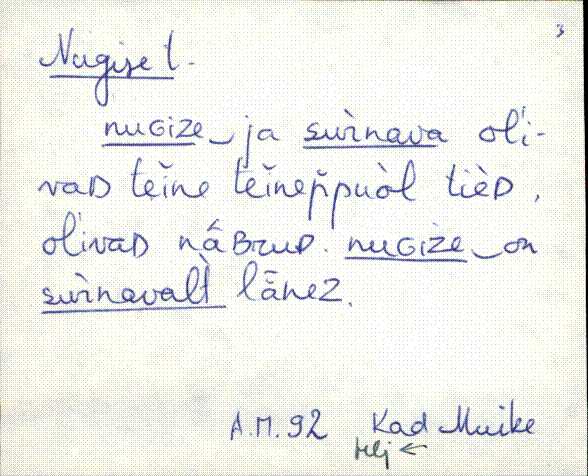 3
Nugise l.
nuGIZE ja sùrnava oľi-
vaD tėine tėineppuòl tièD,
oľivaD nåBruD. nuGIŽE on
sùrnavalt lānez.
A.M. 92 Kad Muike
Hlj ←